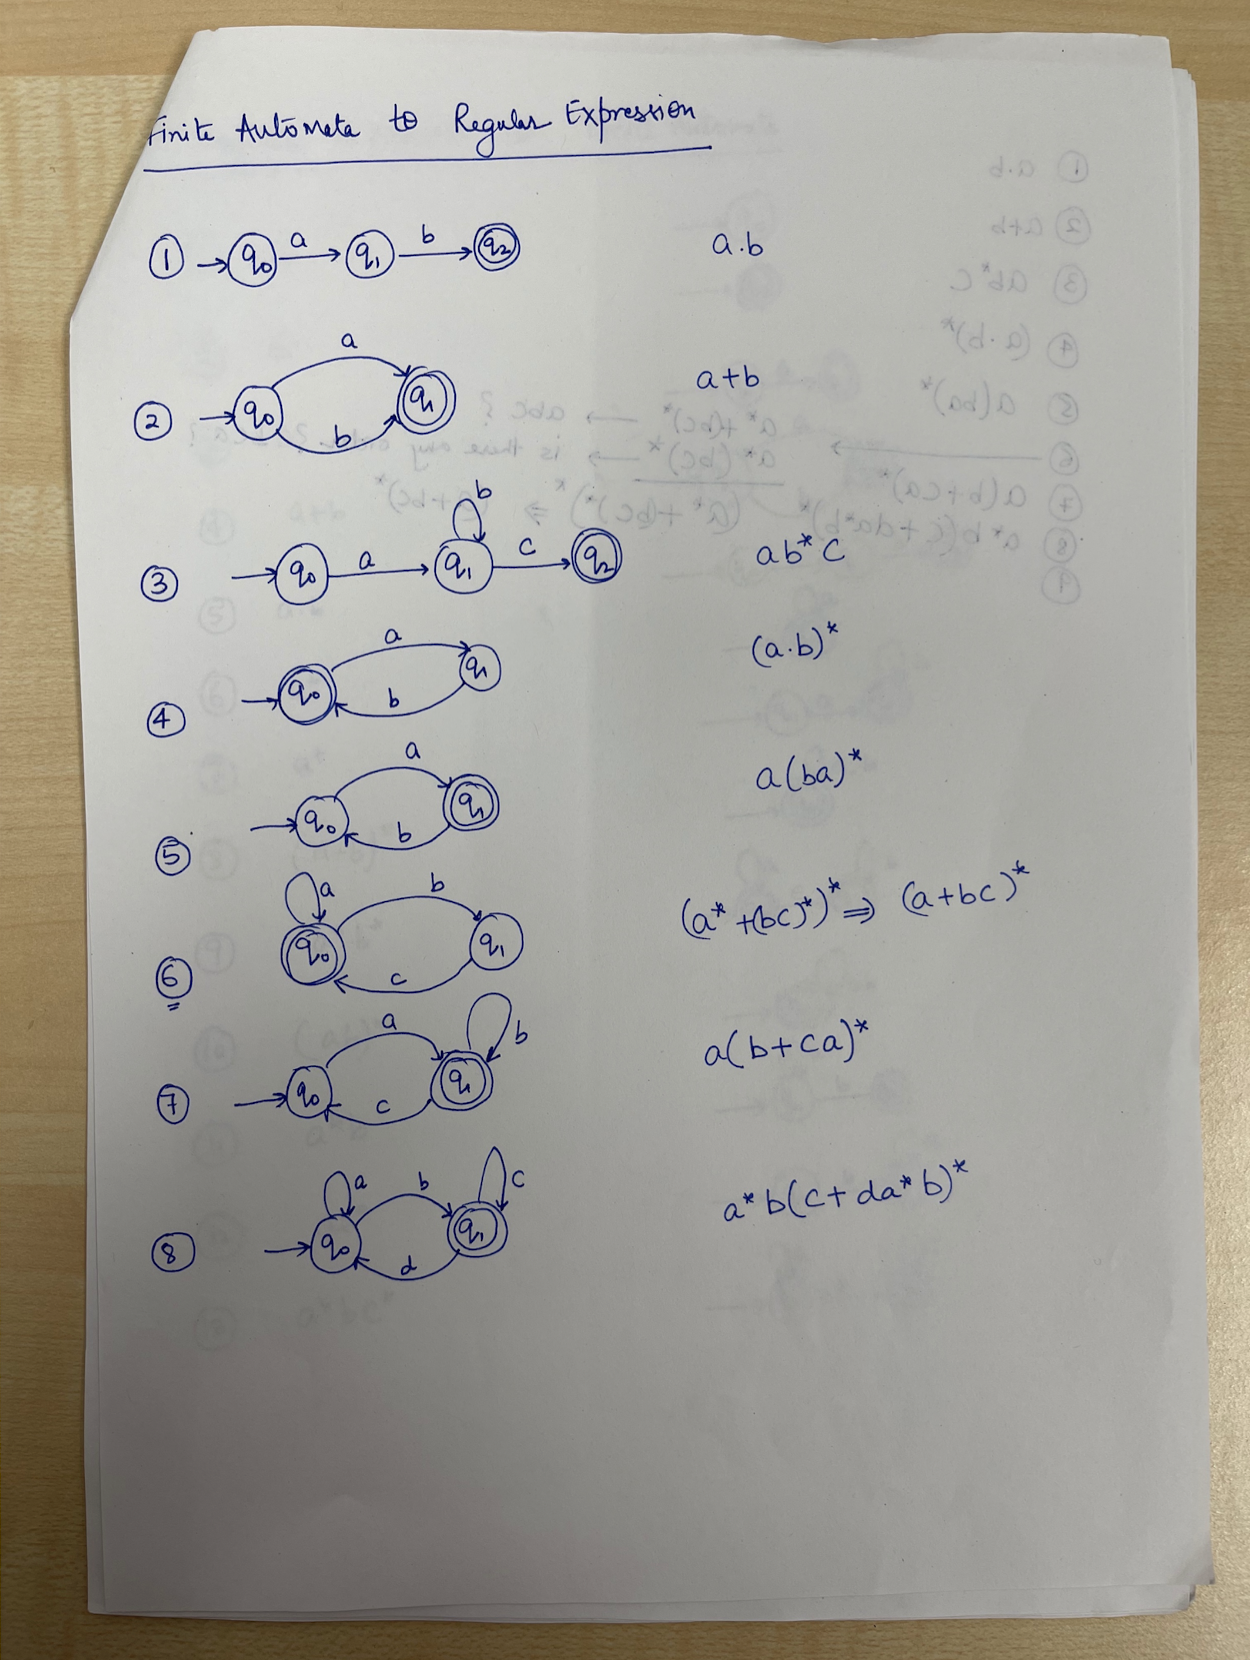 Finite Automata to Regular Expression
① q₀ a q₁ b q₂ a.b
② q₀ a b q₁ a+b
③ q₀ a q₁ b c q₂ ab*c
④ q₀ a b q₁ (a.b)*
⑤ q₀ a b q₁ a(ba)*
⑥ a q₀ b c q₁ (a* + (bc)*)* ⇒ (a+bc)*
⑦ q₀ a c q₁ b a(b+ca)*
⑧ a q₀ b d q₁ c a*b(c+da*b)*